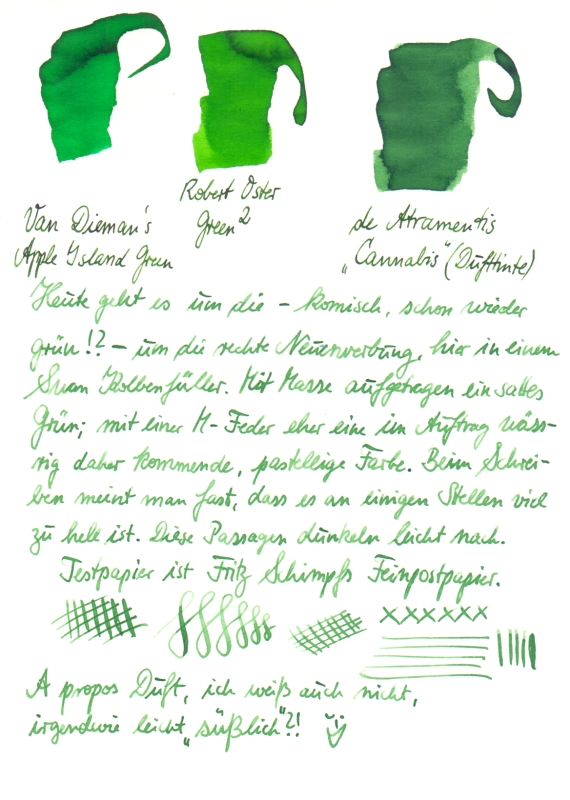 Robert Oster
Green²
Van Dieman's
Apple Island Green
de Atramentis
„Cannabis" (Duftinte)
Heute geht es um die – komisch, schon wieder
grün!? – um die rechte Neuerwerbung, hier in einem
Swan Kolbenfüller. Mit Masse aufgetragen ein sattes
Grün; mit einer M-Feder eher eine im Auftrag wäss-
rig daher kommende, pastellige Farbe. Beim Schrei-
ben meint man fast, dass es an einigen Stellen viel
zu hell ist. Diese Passagen dunkeln leicht nach.
Testpapier ist Fritz Schimpfs Feinpostpapier.
A propos Duft, ich weiß auch nicht,
irgendwie leicht „süßlich"?!